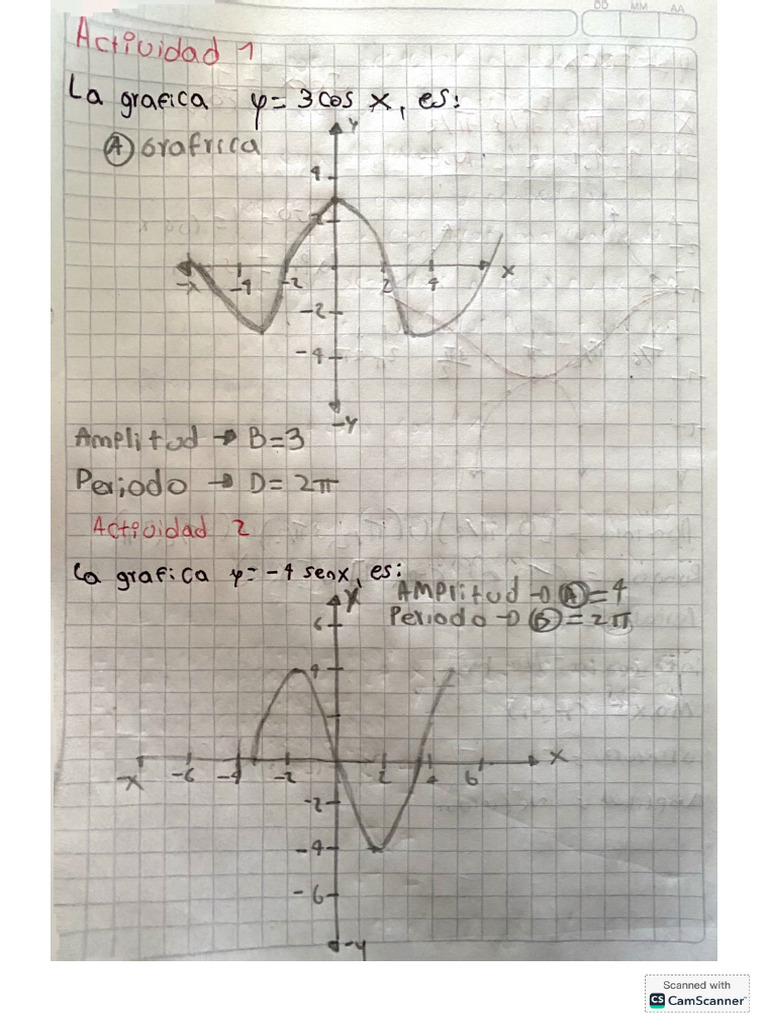 DD MM AA
Actividad 1
La grafica y = 3cos x, es:
A Grafrica
Y
4
2
-x -4 -2 2 4 x
-2
-4
-y
Amplitud → B=3
Periodo → D= 2π
Actividad 2
La grafica y= -4 senx, es:
Amplitud → A = 4
Periodo → B = 2π
6
4
-x -6 -4 -2 2 4 6 x
-2
-4
-6
-y
Scanned with
CS CamScanner